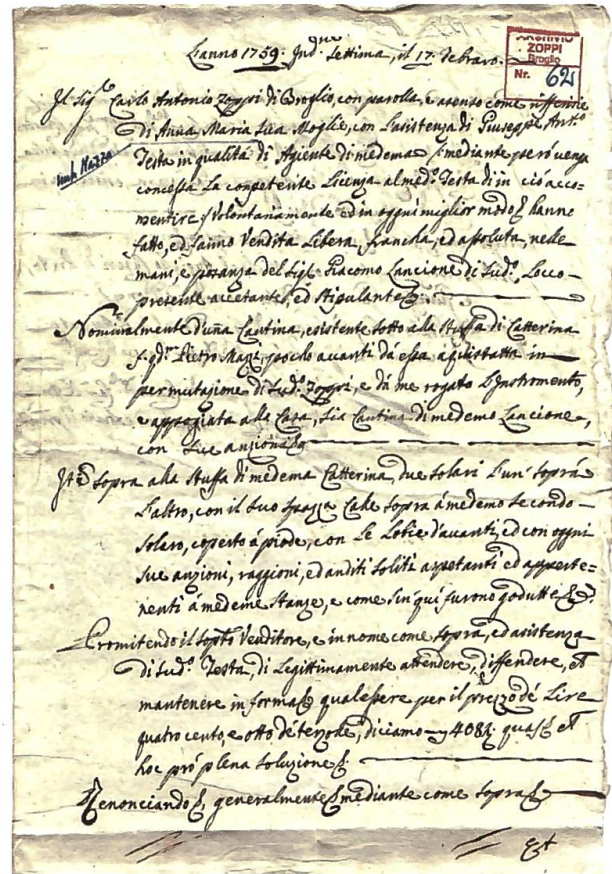 ARCHIVIO
ZOPPI
Broglio
Nr. 62
L'anno 1759: Ind.ne Settima, il 17. Febraro.
Il Sig.r Carlo Antonio Zoppi di Broglio, con parolla, e asenso come
di Anna Maria Sua Moglie, con l'asistenza di Giuseppe Ant.o
Testa in qualità di Agiente di medema mediante però venga
concessa La conpetente Licenza al med.o Testa di in ciò acco-
mentire Volontariamente ed in ogni miglior modo hanno
fatto, ed fanno Vendita Libera, francha, ed assoluta, nelle
mani, e possanza del Sig.r Giacomo Lancione di Sud.o Locco
presente accetante, ed stipulante
Nominalmente d'una Cantina, esistente sotto alla Stuffa di Catterina
f. qd.m Pietro Mazzi, pocho avanti dà essa aquistatta in
permutazione di Sud.o Zoppi, e dà me rogato L'Instromento,
e appogiata alla Casa, sia Cantina di medemo Lancione,
con Sue anzioni
It.m sopra alla Stuffa di medema Catterina, due solari L'un' soprà
L'altro, con il suo spazza Cale sopra à medemo secondo
solaro, coperto à piode, con Le Lobie d'avanti, ed con ogni
sue anzioni, raggioni, ed anditi soliti aspetanti ed apparte-
nenti à medeme Stanze, e come sin' quì furono godutte
Promitendo il sop.to Venditore, e in nome come soprà, ed asistenza
di Sud.o Testa, di Legittimamente attendere, diffendere, et
mantenere in forma qualessere per il prezzo dè Lire
quatro cento, e otto dè terzole, diciamo 408. quas et
hoc prò plena soluzione
Renonciando generalmente mediante come sopra